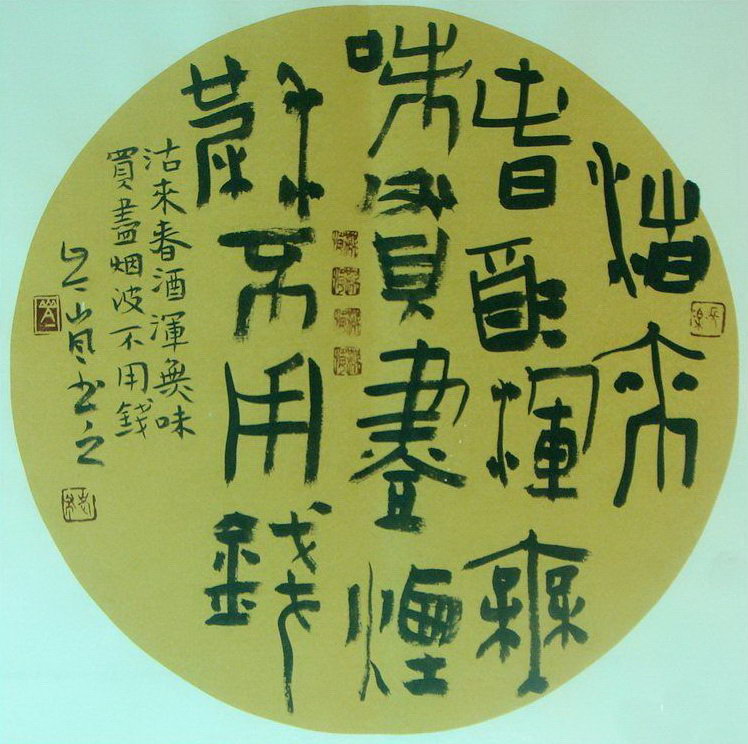 沽來
春酒渾無
味買盡煙
波不用錢
沽來春酒渾無味
買盡烟波不用錢
书之